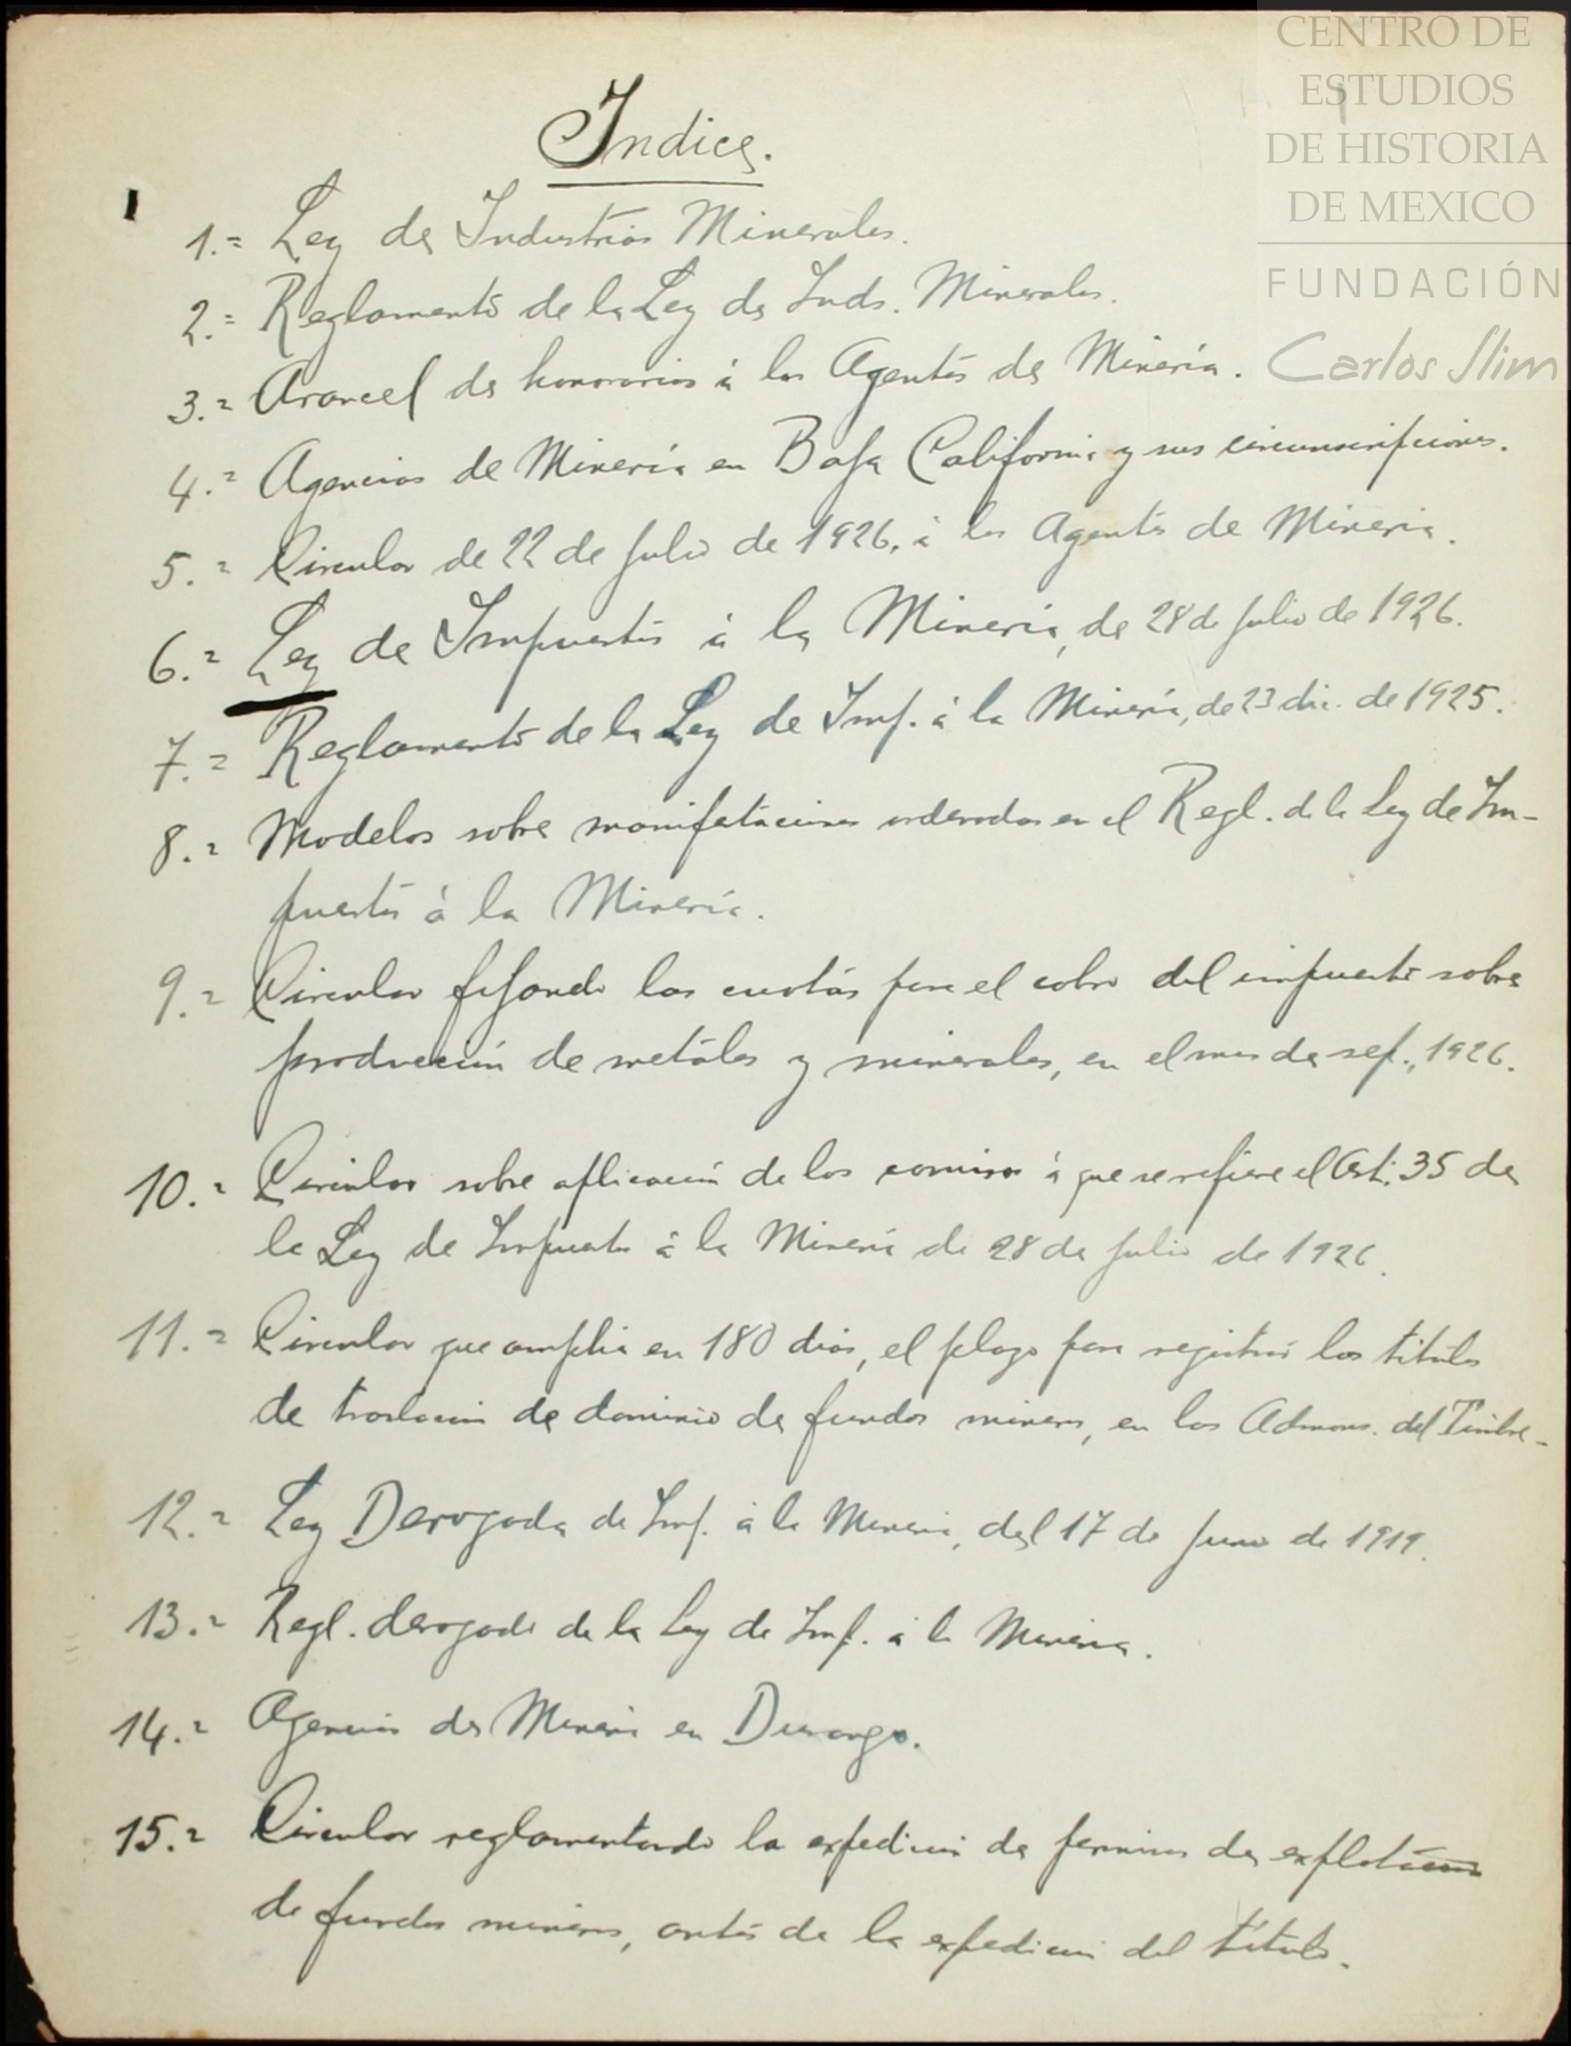 CENTRO DE
ESTUDIOS
DE HISTORIA
DE MEXICO
FUNDACIÓN
Carlos Slim
Indice.
1.= Ley de Industrias Minerales.
2.= Reglamento de la Ley de Inds. Minerales.
3.= Arancel de honorarios á los Agentes de Minería.
4.= Agencias de Minería en Baja California y sus circunscripciones.
5.= Circular de 22 de Julio de 1926, á los Agentes de Mineria.
6.= Ley de Impuestos á la Minería, de 28 de Julio de 1926.
7.= Reglamento de la Ley de Imp. á la Minería, de 23 dic. de 1925.
8.= Modelos sobre manifestaciones ordenadas en el Regl. de la Ley de Im-
puestos á la Minería.
9.= Circular fijando las cuotas para el cobro del impuesto sobre
producción de metales y minerales, en el mes de sep., 1926.
10.= Circular sobre aplicación de los comisos á que se refiere el Art. 35 de
la Ley de Impuestos á la Minería de 28 de Julio de 1926.
11.= Circular que amplia en 180 dias, el plazo para registrar los titulos
de traslación de dominio de fundos mineros, en las Admons. del Timbre.-
12.= Ley Derogada de Imp. á la Mineria, del 17 de Junio de 1919.
13.= Regl. derogado de la Ley de Imp. á la Mineria.
14.= Agencias de Minería en Durango.
15.= Circular reglamentando la expedición de permisos de explotación
de fundos mineros, antes de la expedición del titulo.